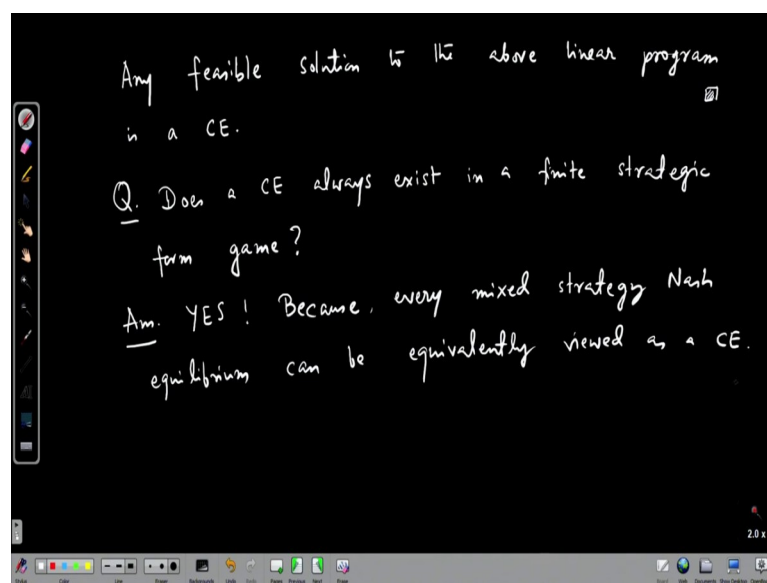 Any feasible solution to the above linear program
is a CE.
Q. Does a CE always exist in a finite strategic
form game?
Ans. YES! Because, every mixed strategy Nash
equilibrium can be equivalently viewed as a CE.
2.0 x
Style Color Line Eraser Backgrounds Undo Redo Pages Previous Next Erase Board Web Documents Show Desktop